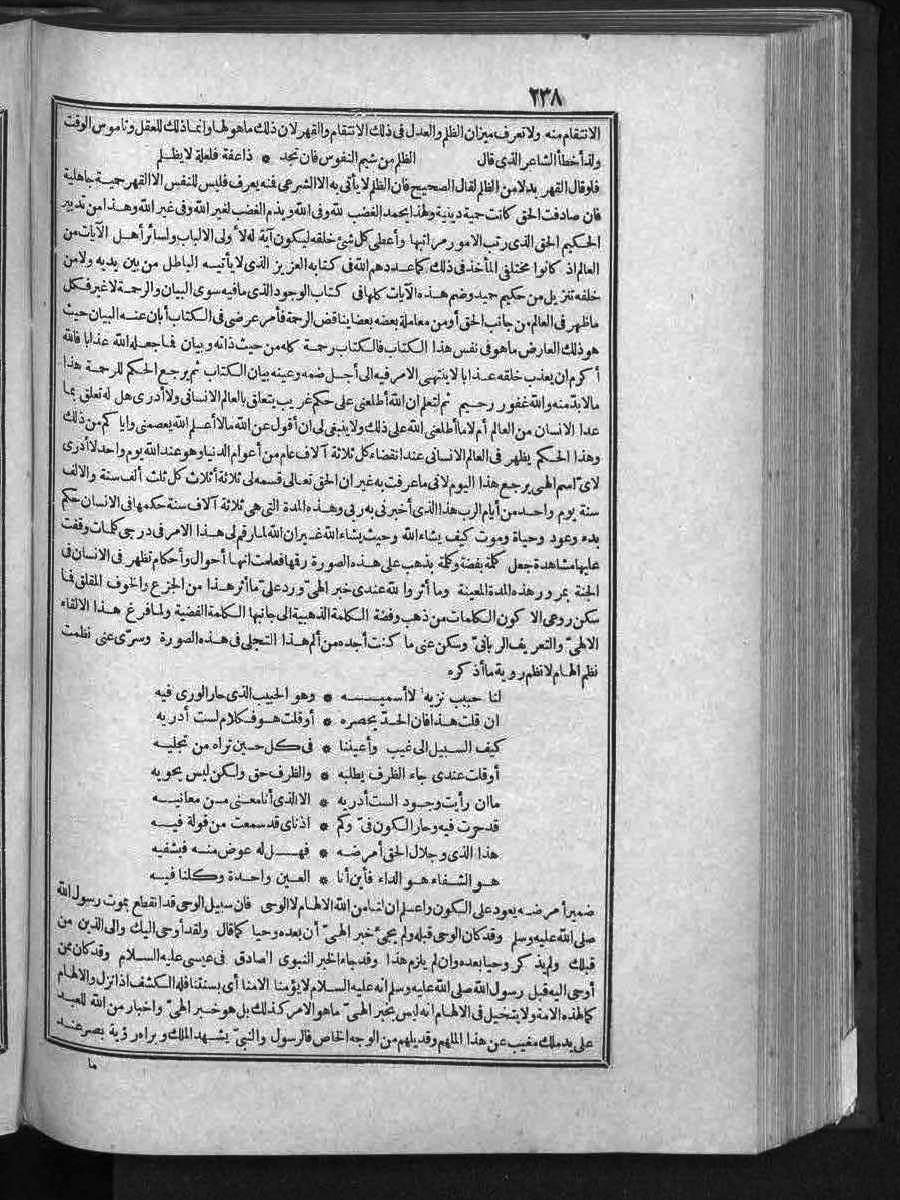 ٢٣٨
الانتقام منه ولا تعرف ميزان الظلم والعدل فى ذلك الانتقام والقهر لان ذلك ما هو لها وانما ذلك للعقل وناموس الوقت
ولقد أخطأ الشاعر الذى قال الظلم من شيم النفوس فان تجد * ذا عفة فلعلة لا يظلم
فلو قال القهر بدلا من الظلم لقال الصحيح فان الظلم لا يأتى به الا الشرعى فنه يعرف فليس للنفس الا القهر حمية جاهلية
فان صادفت الحق كانت حمية دينية ولهذا يحمد الغضب لله وفى الله ويذم الغضب لغير الله وفى غير الله وهذا من تدبير
الحكيم الحق الذى رتب الامور مراتبها وأعطى كل شئ خلقه ليكون آية له لأولى الالباب ولسائر أهل الآيات من
العالم اذ كانوا مختلفى المأخذ فى ذلك كما عددهم الله فى كتابه العزيز الذى لا يأتيه الباطل من بين يديه ولا من
خلفه تنزيل من حكيم حميد وضم هذه الآيات كلها فى كتاب الوجود الذى ما فيه سوى البيان والرحمة لا غير فكل
ما ظهر فى العالم من جانب الحق أو من معاملة بعضه بعضا يناقض الرحمة فأمر عرضى فى الكتاب أبان عنه البيان حيث
هو ذلك العارض ما هو فى نفس هذا الكتاب فالكتاب رحمة كله من حيث ذاته وبيان فما جعله الله عذابا فالله
أكرم ان يعذب خلقه عذابا لا ينتهى الامر فيه الى أجل ضمه وعينه بيان الكتاب ثم يرجع الحكم للرحمة هذا
ما لا بد منه والله غفور رحيم ثم لتعلم ان الله أطلعنى على حكم غريب يتعلق بالعالم الانسانى ولا أدرى هل له تعلق بما
عدا الانسان من العالم أم لا ما أطلعنى الله على ذلك ولا ينبغى لى ان أقول عن الله ما لا أعلم الله يعصمنى وايا كم من ذلك
وهذا الحكم يظهر فى العالم الانسانى عند انقضاء كل ثلاثة آلاف عام من أعوام الدنيا وهو عند الله يوم واحد لا أدرى
لاى اسم الهى يرجع هذا اليوم لانى ما عرفت به غير ان الحق تعالى قسمه لى ثلاثة أثلاث كل ثلث ألف سنة والالف
سنة يوم واحد من أيام الرب هذا الذى أخبرنى به ربى وهذه المدة التى هى ثلاثة آلاف سنة حكمها فى الانسان حكم
بدء وعود وحياة وموت كيف يشاء الله وحيث يشاء الله غير ان الله لما رقم لى هذا الامر فى درجى كلمات وقفت
عليها مشاهدة جعل كلمة بفضة وكلمة بذهب على هذه الصورة رقها فعلمت انها أحوال وأحكام تظهر فى الانسان فى
الجنة بمرور هذه المدة المعينة وما أثر والله عندى خبر الهى ورد على ما أثر هذا من الجزع والخوف المقلق فما
سكن روعى الا كون الكلمات من ذهب وفضة الكلمة الذهبية الى جانبها الكلمة الفضية ولما فرغ هذا الالقاء
الالهى والتعريف الربانى وسكن عنى ما كنت أجده من ألم هذا التجلى فى هذه الصورة وسرى عنى نظمت
نظم الهام لا نظم روية ما أذكره
لنا حبيب نزيه لا أسميه * وهو الحبيب الذى حار الورى فيه
ان قلت هذا فان الحد يحصره * أو قلت هو فكلام لست أدريه
كيف السبيل الى غيب وأعيننا * فى كل حين تراه من تجليه
أو قلت عندى جاء الظرف يطلبه * والظرف حق ولكن ليس يحويه
ما ان رأيت وجود الست أدريه * الا الذى أنا معنى من معانيه
قد حرت فيه وحار الكون فى وكم * اذ ناى قد سمعت من قولة فيه
هذا الذى وجلال الحق أمرضه * فهل له عوض منه فيشفيه
هو الشفاء هو الداء فأين أنا * العين واحدة وكلنا فيه
ضمير أمرضه يعود على الكون واعلم ان لنا من الله الالهام لا الوحى فان سبيل الوحى قد انقطع بموت رسول الله
صلى الله عليه وسلم وقد كان الوحى قبله ولم يجئ خبر الهى أن بعده وحيا كما قال ولقد أوحى اليك والى الذين من
قبلك ولم يذكر وحيا بعده وان لم يلزم هذا وقد جاء الخبر النبوى الصادق فى عيسى عليه السلام وقد كان ممن
أوحى اليه قبل رسول الله صلى الله عليه وسلم انه عليه السلام لا يؤمنا الا منا أى بسنتنا فله الكشف اذا نزل والالهام
كما لهذه الامة ولا يتخيل فى الالهام انه ليس بخبر الهى ما هو الامر كذلك بل هو خبر الهى واخبار من الله للعبد
على يد ملك مغيب عن هذا الملهم وقد يلهم من الوجه الخاص فالرسول والنبى يشهد الملك ويراه رؤية بصر عند
ما